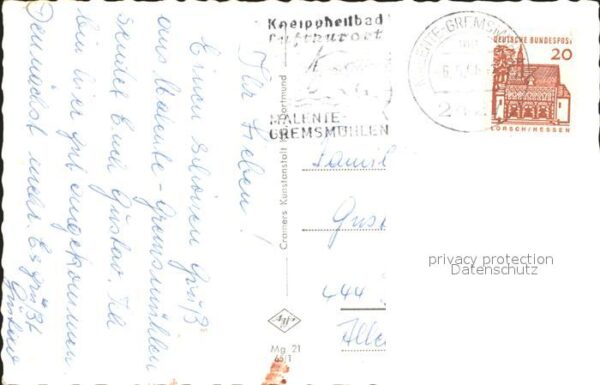 Kneippheilbad
Luftkurort
MALENTE-
GREMSMÜHLEN
MALENTE-GREMSM
DEUTSCHE BUNDESPOST
20
LORSCH/HESSEN
Ihr Lieben!
Einen schönen Gruß
aus Malente-Gremsmühlen
sendet Euch Gustav. Ich
bin hier gut angekommen.
Demnächst mehr. Es grüßt
Gustav
Cramers Kunstanstalt Dortmund
Famil
Gus
444
Alle
Agfa
Mg 21
65/1
privacy protection
Datenschutz